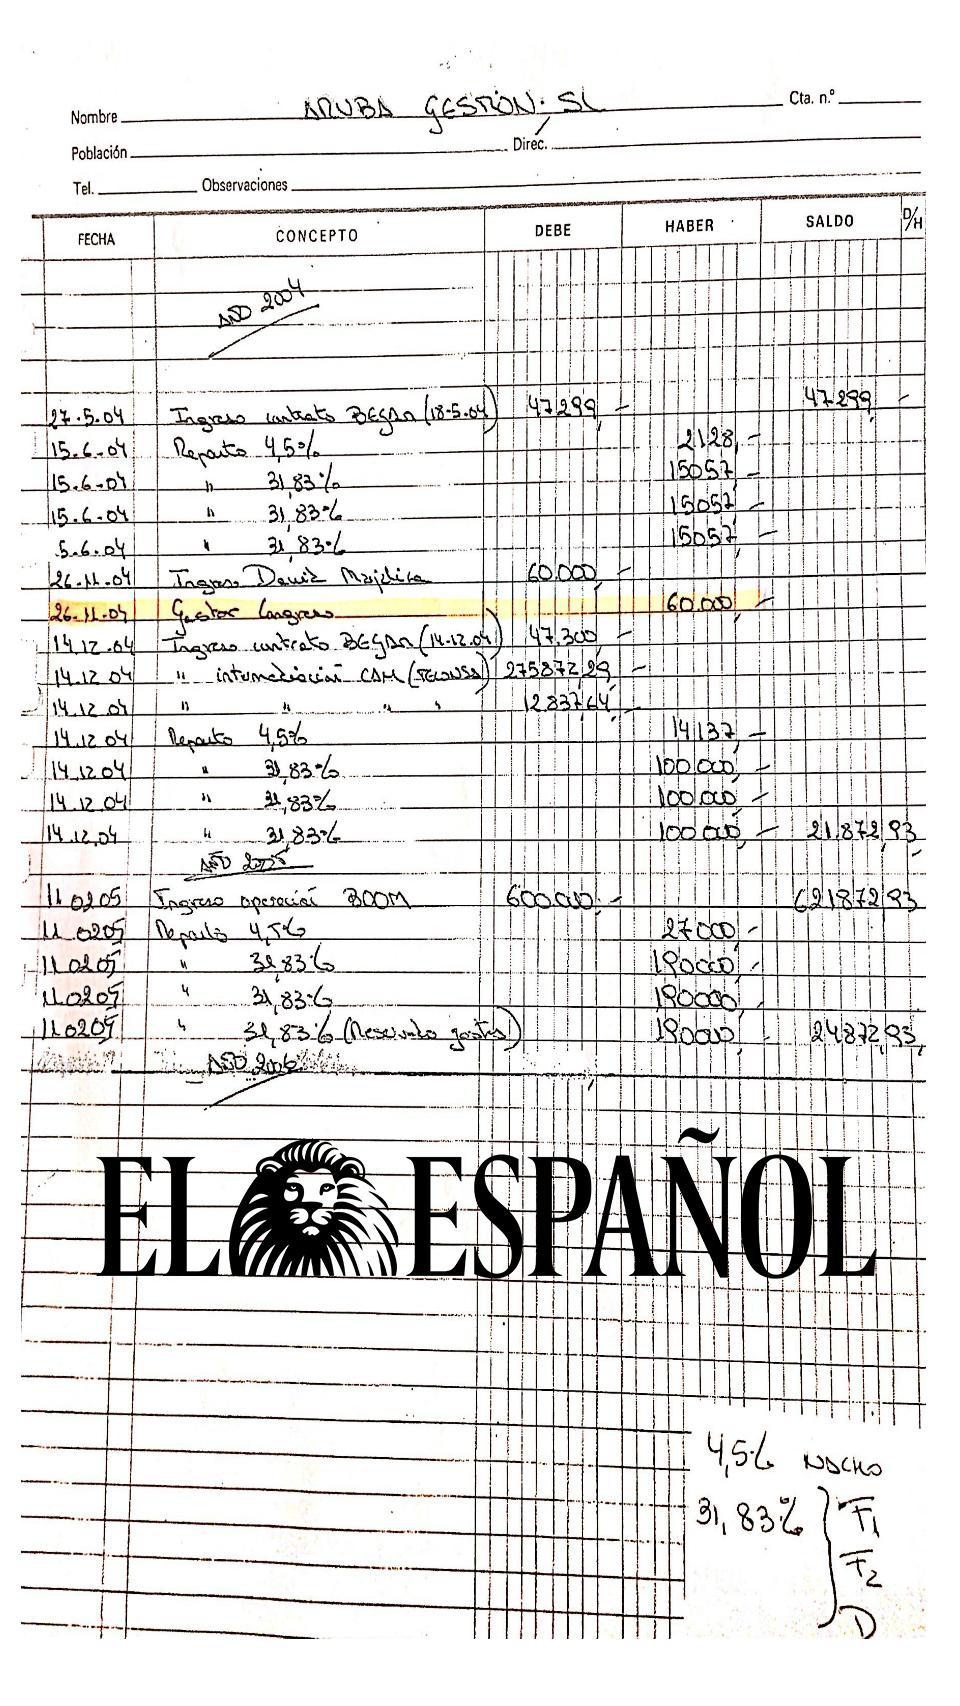 Nombre ARUBA GESTIÓN. SL Cta. n.º
Población Direc.
Tel. Observaciones
FECHA CONCEPTO DEBE HABER SALDO D/H
AÑO 2004
27.5.04 Ingreso contrato BEGAR (18-5.04) 47.299,- 47.299,-
15.6.04 Reparto 4,5% 2128,-
15.6.04 " 31,83% 15057,-
15.6.04 " 31,83% 15057,-
5.6.04 " 31,83% 15057,-
26.11.04 Ingreso 60.000,-
26.11.04 Gastos Congreso 60.000,-
14.12.04 Ingreso contrato BEGAR (14.12.04) 47.300,-
14.12.04 " intermediación CAM (TECONSA) 275872,29,-
14.12.04 " " " " 12.837,64,-
14.12.04 Reparto 4,5% 14.137,-
14.12.04 " 31,83% 100.000,-
14.12.04 " 31,83% 100.000,-
14.12.04 " 31,83% 100.000,- 21.872,93
AÑO 2005
11.02.05 Ingreso operación BOOM 600.000,- 621.872,93
11.02.05 Reparto 4,5% 27.000,-
11.02.05 " 31,83% 190.000,-
11.02.05 " 31,83% 190.000,-
11.02.05 " 31,83% (Reservado gastos) 190.000,- 24.872,93
AÑO 2006
EL ESPAÑOL
4,5% NACHO
31,83% } F1
F2
D